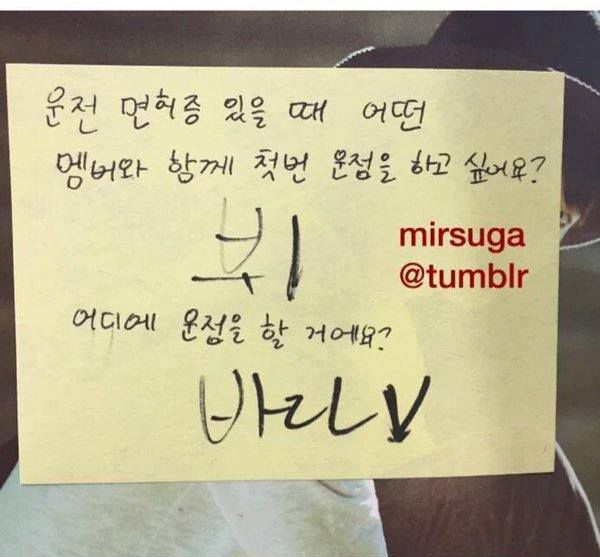 운전 면허증 있을 때 어떤
멤버와 함께 첫번 운점을 하고 싶어요?
뷔
mirsuga
@tumblr
어디에 운점을 할 거에요?
바다V